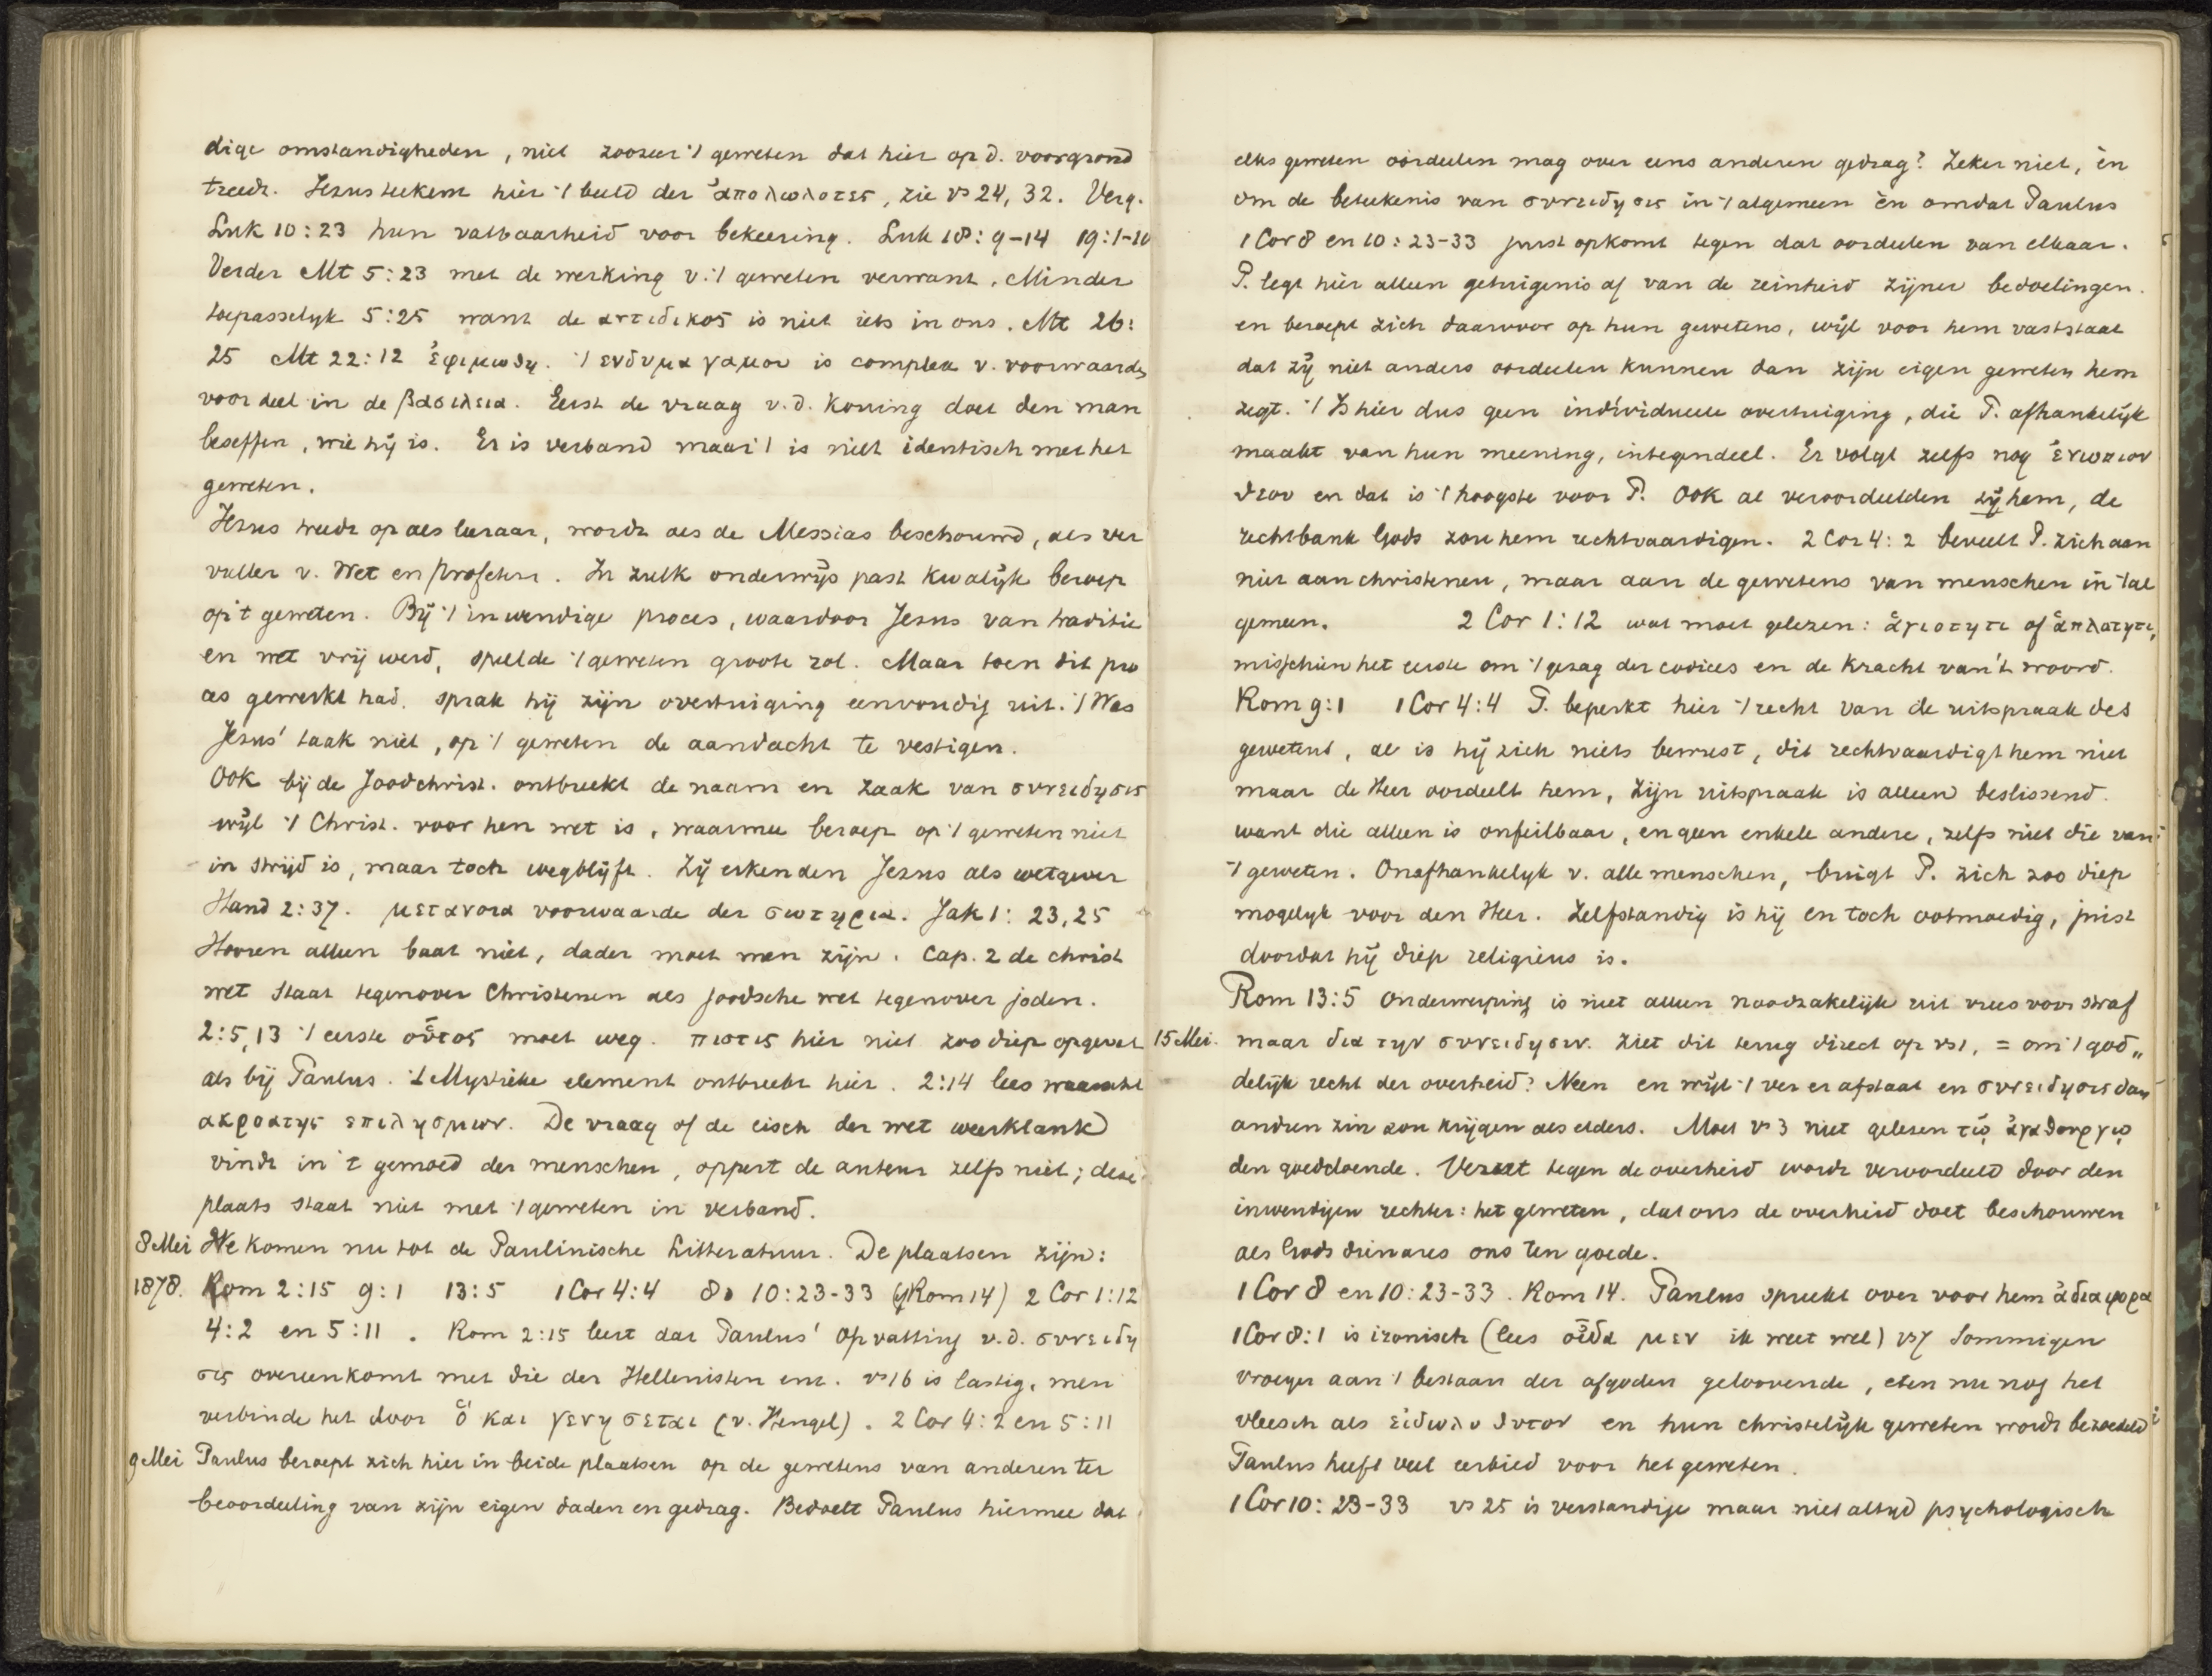 dige omstandigheden, niet zoozeer 't geweten dat hier op d. voorgrond
treedt. Jezus teekent hier 't beeld der ἀπολωλοτες, zie vs 24, 32. Verg.
Luk 10:23 hun vatbaarheid voor bekeering. Luk 18:9-14 19:1-10
Verder Mt 5:23 met de werking v. 't geweten verwant. Minder
toepasselijk 5:25 want de αντιδικος is niet iets in ons. Mt 26:
25 Mt 22:12 ἐφιμωθη. 't ενδυμα γαμου is complex v. voorwaarden
voor deel in de βασιλεια. Eerst de vraag v. d. Koning doet den man
beseffen, wie hij is. Er is verband maar 't is niet identisch met het
geweten.
Jezus treedt op als leeraar, wordt als de Messias beschouwd, als ver
vuller v. Wet en Profeten. In zulk onderwijs past kwalijk beroep
op 't geweten. Bij 't inwendige proces, waardoor Jezus van traditie
en wet vrij werd, speelde 't geweten groote rol. Maar toen dit pro
ces gewerkt had, sprak hij zijn overtuiging eenvoudig uit. 't Was
Jezus' taak niet, op 't geweten de aandacht te vestigen.
Ook bij de Joodchrist. ontbreekt de naam en zaak van συνειδησις
wijl 't Christ. voor hen wet is, waarmee beroep op 't geweten niet
in strijd is, maar toch wegblijft. Zij erkenden Jezus als wetgever
Hand 2:37. μετανοια voorwaarde der σωτηρια. Jak 1:23,25
Hooren alleen baat niet, dader moet men zijn. Cap. 2 de christ
wet staat tegenover Christenen als joodsche wet tegenover joden.
2:5,13 't eerste οὗτος moet weg. πιστις hier niet zoo diep opgevat
als bij Paulus. 't Mystieke element ontbreekt hier. 2:14 lees
ακροατης επιλησμων. De vraag of de eisch der wet weerklank
vindt in 't gemoed der menschen, oppert de auteur zelfs niet; deze
plaats staat niet met 't geweten in verband.
8 Mei We komen nu tot de Paulinische Litteratuur. De plaatsen zijn:
1878. Rom 2:15 9:1 13:5 1 Cor 4:4 8. 10:23-33 (cf Rom 14) 2 Cor 1:12
4:2 en 5:11. Rom 2:15 leert dat Paulus' opvatting v. d. συνειδη
σις overeenkomt met die der Hellenisten enz. vs 16 is lastig, men
verbinde het door ὃ και γενησεται (v. Hengel). 2 Cor 4:2 en 5:11
9 Mei Paulus beroept zich hier in beide plaatsen op de gewetens van anderen ter
beoordeeling van zijn eigen daden en gedrag. Bedoelt Paulus hiermee dat
elks geweten oordeelen mag over eens anderen gedrag? Zeker niet, èn
om de beteekenis van συνειδησις in 't algemeen èn omdat Paulus
1 Cor 8 en 10:23-33 juist opkomt tegen dat oordeelen van elkaar.
P. legt hier alleen getuigenis af van de reinheid zijner bedoelingen
en beroept zich daarvoor op hun gewetens, wijl voor hem vaststaat
dat zij niet anders oordeelen kunnen dan zijn eigen geweten hem
zegt. 't Is hier dus geen individueele overtuiging, die P. afhankelijk
maakt van hun meening, integendeel. Er volgt zelfs nog ἐνωπιον
θεου en dat is 't hoogste voor P. Ook al veroordeelden zij hem, de
rechtbank Gods zou hem rechtvaardigen. 2 Cor 4:2 beveelt P. zich aan
niet aan christenen, maar aan de gewetens van menschen in 't al
gemeen. 2 Cor 1:12 wat moet gelezen: ἁγιοτητι of ἁπλοτητι,
misschien het eerste om 't gezag der codices en de kracht van 't woord.
Rom 9:1 1 Cor 4:4 P. beperkt hier 't recht van de uitspraak des
gewetens, al is hij zich niets bewust, dit rechtvaardigt hem niet
maar de Heer oordeelt hem, zijn uitspraak is alleen beslissend.
want die alleen is onfeilbaar, en geen enkele andere, zelfs niet die van
't geweten. Onafhankelyk v. alle menschen, buigt P. zich zoo diep
mogelyk voor den Heer. Zelfstandig is hij en toch ootmoedig, juist
doordat hij diep religieus is.
Rom 13:5 Onderwerping is niet alleen noodzakelijk uit vrees voor straf
15 Mei. maar δια την συνειδησιν. Ziet dit terug direct op vs 1, = om 't god„
delijk recht der overheid? Neen en wijl 't ver er afstaat en συνειδησις dan
andren zin zou krijgen als elders. Moet vs 3 niet gelezen τῷ ἀγαθουργῳ
den goeddoende. Verzet tegen de overheid wordt veroordeeld door den
inwendigen rechter: het geweten, dat ons de overheid doet beschouwen
als Gods dienares ons ten goede.
1 Cor 8 en 10:23-33. Rom 14. Paulus spreekt over voor hem ἀδιαφορα
1 Cor 8:1 is ironisch (lees οἶδα μεν ik weet wel) vs 7 Sommigen
vroeger aan 't bestaan der afgoden geloovende, eten nu nog het
vleesch als εἰδωλοθυτον en hun christelijk geweten wordt bezoedeld
Paulus heeft veel eerbied voor het geweten.
1 Cor 10:23-33 vs 25 is verstandige maar niet altyd psychologisch